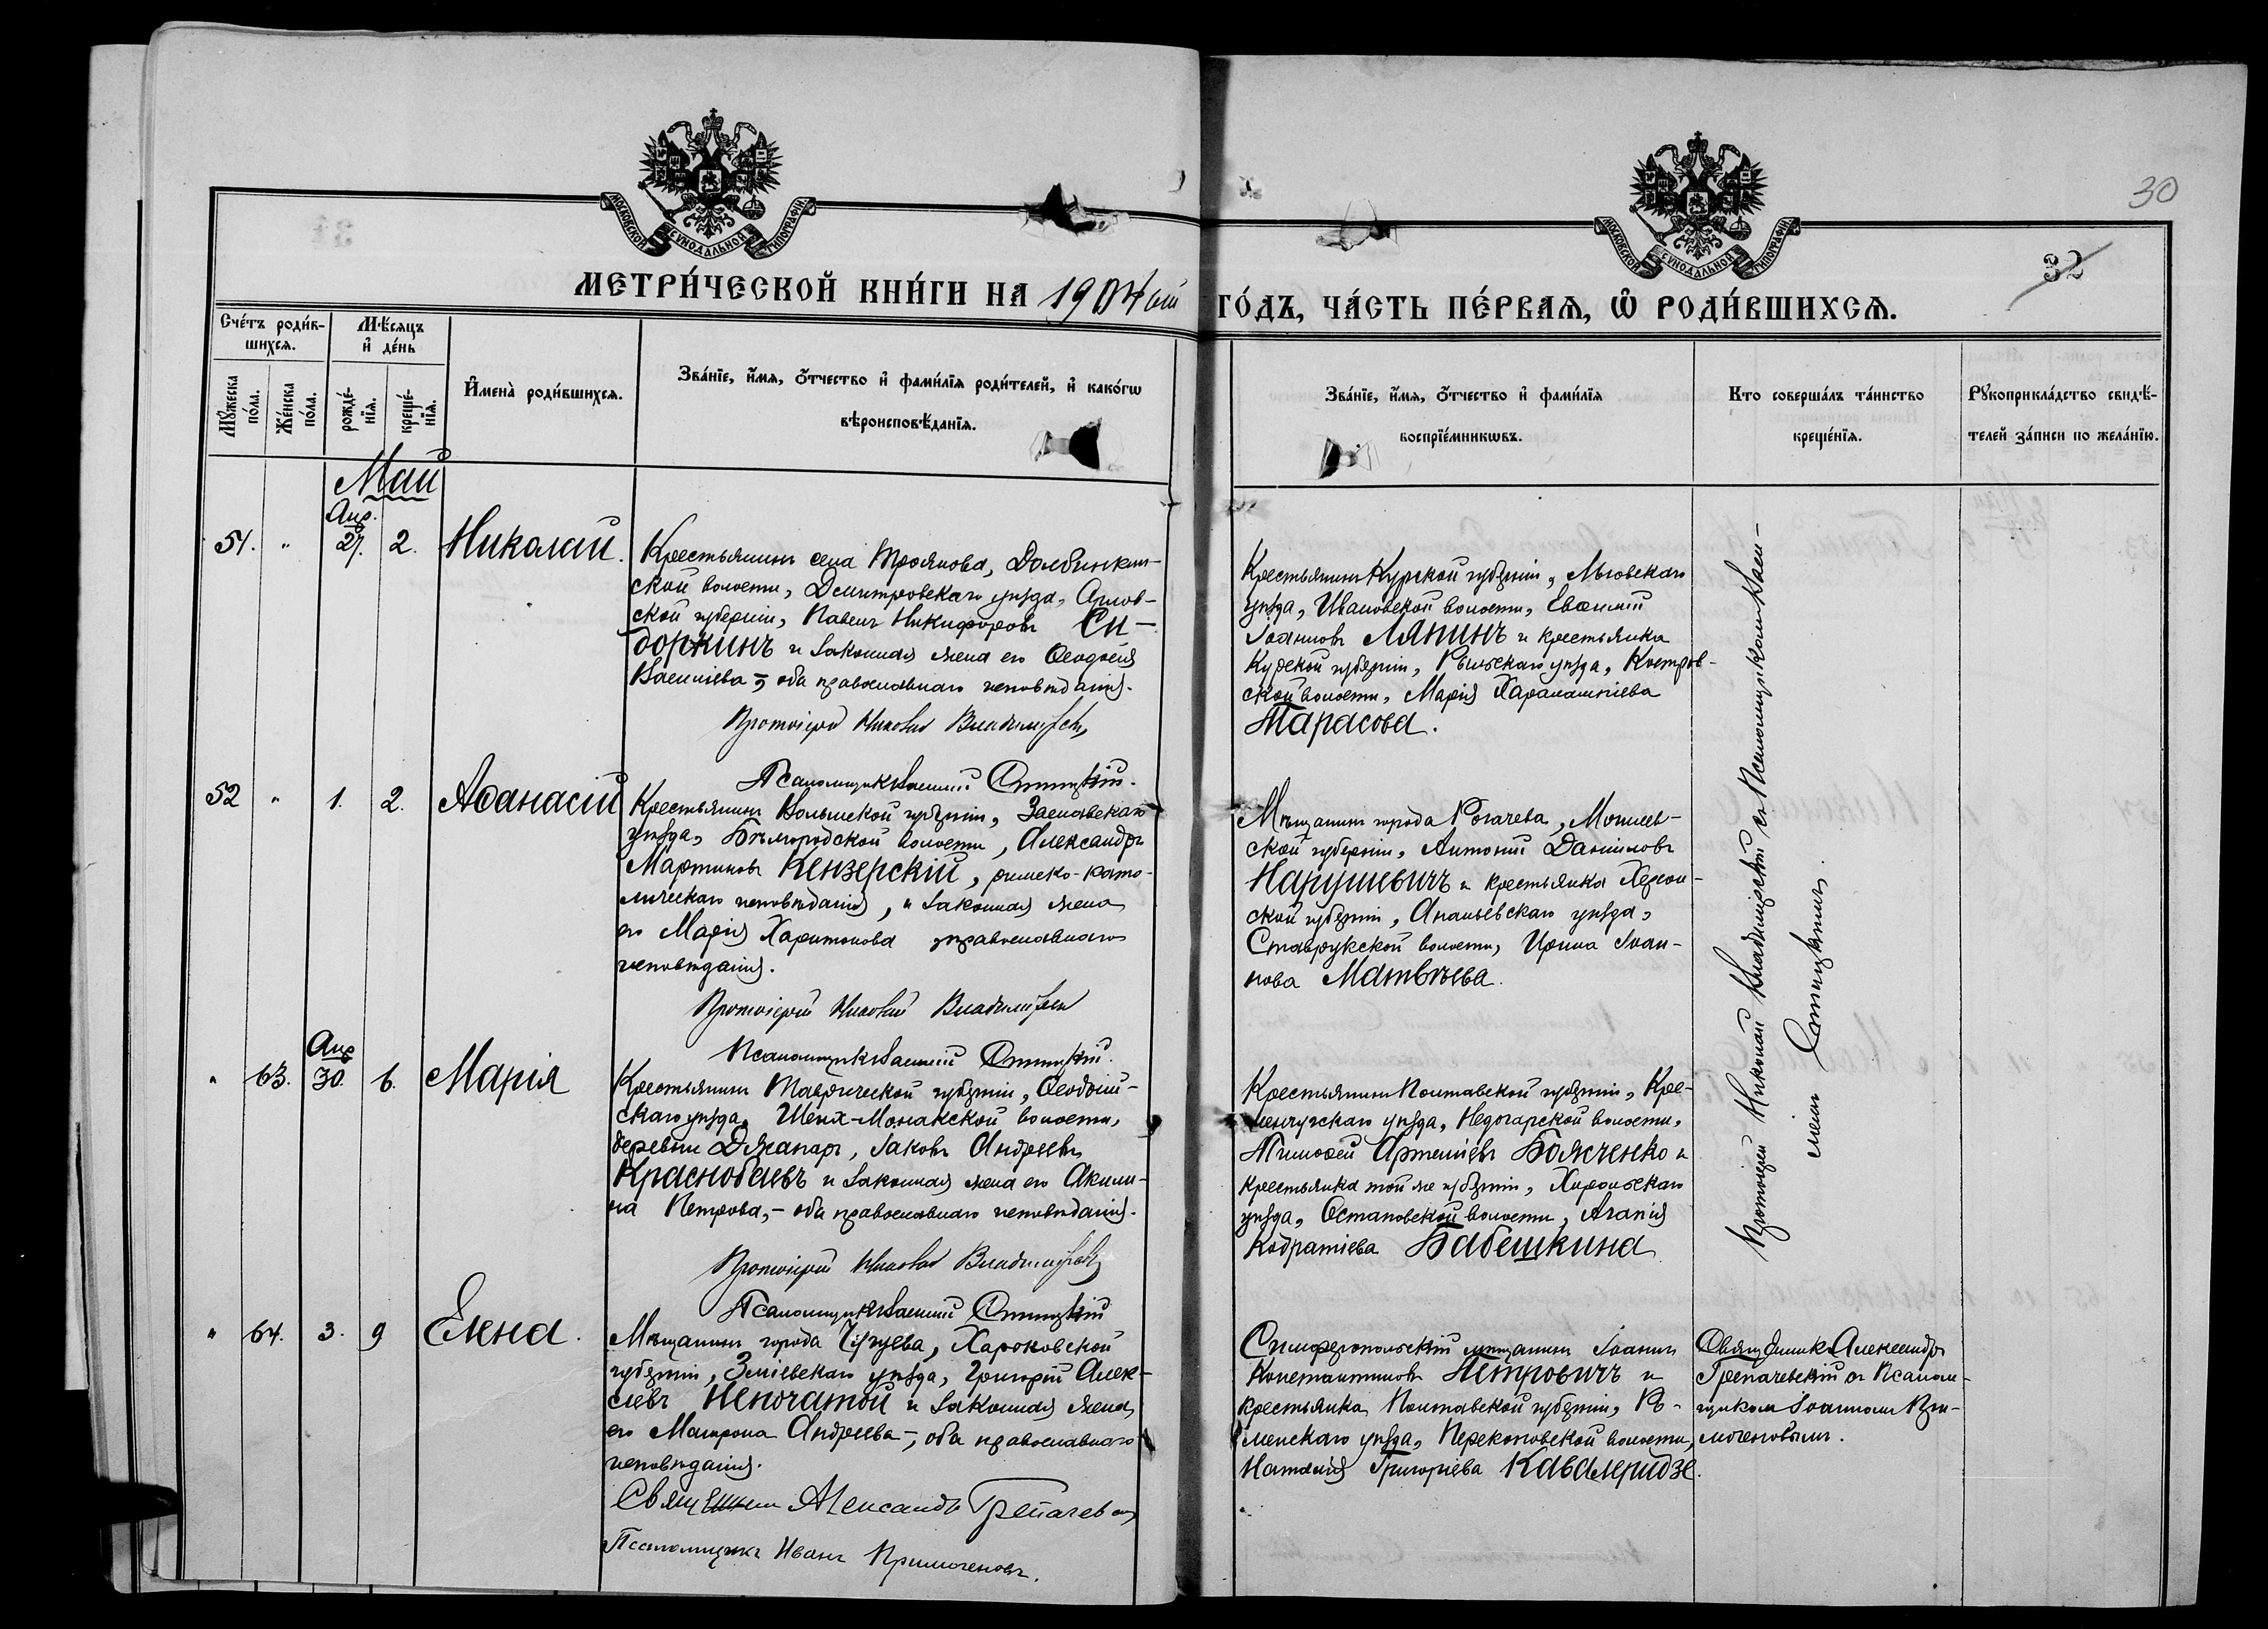 30
МОСКОВСКОЙ СѴНОДАЛЬНОЙ ТИПОГРАФІИ
МОСКОВСКОЙ СѴНОДАЛЬНОЙ ТИПОГРАФІИ
32
МЕТРИ́ЧЕСКОЙ КНИ́ГИ НА 1904ый ГО́ДЪ, ЧА́СТЬ ПЕ́РВАѦ, Ѡ РОДИ́ВШИХСѦ.
Сче́тъ роди́в-
шихсѧ.
Мѣ́сѧцъ
и҆ де́нь
Мꙋжеска
по́ла.
Же́нска
по́ла.
рожде́-
нїѧ.
креще́-
нїѧ.
И҆мена̀ роди́вшихсѧ.
Зва́нїе, и҆́мѧ, ѻ҆́тчество и҆ фами́лїѧ роди́телей, и҆ како́гѡ
вѣроисповѣ́данїѧ.
Зва́нїе, и҆́мѧ, ѻ҆́тчество и҆ фами́лїѧ
воспрїе́мникѡвъ.
Кто соверша́лъ та́инство
креще́нїѧ.
Рꙋкоприкла́дство свидѣ́-
телей за́писи по жела́нїю.
Май
Апр.
51. " 27. 2. Николай.
Крестьянинъ села Троянова, Долбинкин-
ской волости, Дмитровскаго уѣзда, Орлов-
ской губерніи, Павелъ Никифоровъ Си-
доркинъ и законная жена его Ѳеодосія
Васильева –, оба православнаго исповѣданія.
Протоіерей Николай Владимірскій
Псаломщикъ Василій Ситницкій.
Крестьянинъ Курской губерніи, Льговскаго
уѣзда, Ивановской волости, Евѳимій
Іоанновъ Лянинъ и крестьянка
Курской губерніи, Рыльскаго уѣзда, Костров-
ской волости, Марія Харалампіева
Тарасова.
Протоіерей Николай Владимірскій съ Псаломщикомъ Васи-
ліемъ Ситницкимъ.
52 " 1. 2. Аѳанасій
Крестьянинъ Волынской губерніи, Заславскаго
уѣзда, Бѣлогородской волости, Александръ
Мартиновъ Кензерскій, римско-като-
лическаго исповѣданія, и законная жена
его Марія Харитонова православнаго
исповѣданія.
Протоіерей Николай Владимірскій
Псаломщикъ Василій Ситницкій.
Мѣщанинъ города Рогачева, Могилев-
ской губерніи, Антоній Даниловъ
Нарушевичъ и крестьянка Херсон-
ской губерніи, Ананьевскаго уѣзда,
волости, Ирина Іоан-
нова Матвѣева.
Апр
" 63. 30. 6. Марія
Крестьянинъ Таврической губерніи, Ѳеодосій-
скаго уѣзда, Шейх-Монакской волости,
деревни Джапаръ, Іаковъ Андреевъ
Краснобаевъ и законная жена его Акили-
на Петрова, – оба православнаго исповѣданія.
Протоіерей Николай Владимірскій
Псаломщикъ Василій Ситницкій
Крестьянинъ Полтавской губерніи, Кре-
менчугскаго уѣзда, Недогарской волости,
Тимоѳей Артеміевъ Божченко и
крестьянка той же губерніи, Хорольскаго
уѣзда, Остаповской волости, Агапія
Кодратіева Бабешкина
" 64. 3. 9 Елена.
Мѣщанинъ города Чугуева, Харьковской
губерніи, Зміевскаго уѣзда, Григорій Алек-
сѣевъ Непочатой и законная жена
его Матрона Андреева –, оба православнаго
исповѣданія.
Священникъ Александръ Грепачевскій
Псаломщикъ Иванъ Примоченовъ.
Симферопольскій мѣщанинъ Іоаннъ
Константиновъ Петровичъ и
крестьянка Полтавской губерніи, Ро-
менскаго уѣзда, Перекоповской волости,
Наталія Григоріева Кавалеридзе.
Священникъ Александръ
Грепачевскій съ Псалом-
щикомъ Іоанномъ При-
моченовымъ.